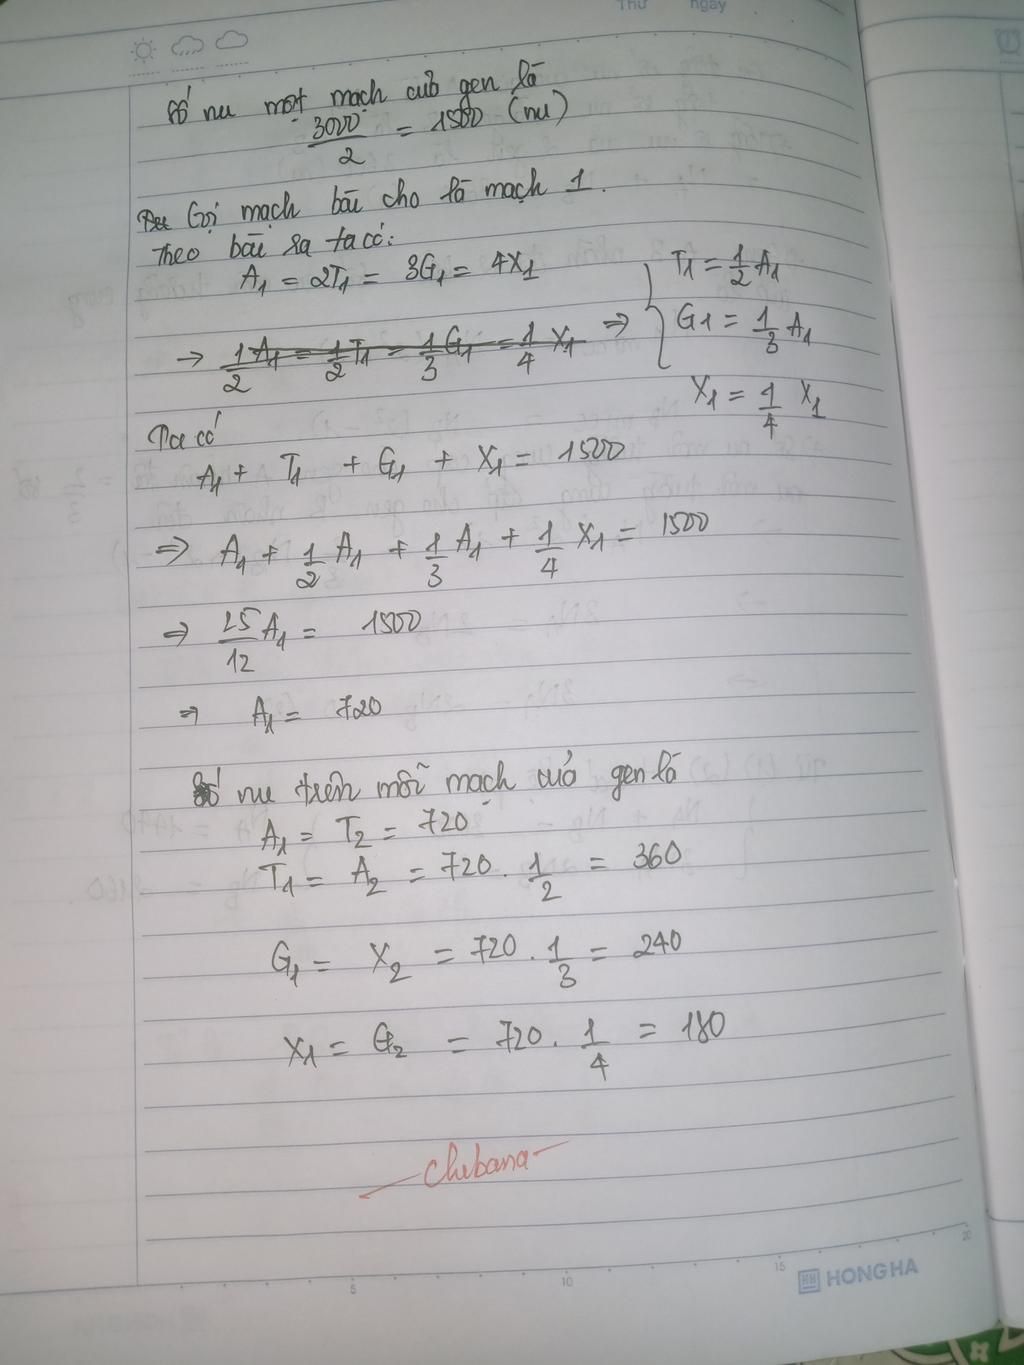 Thứ ngày
Số nu một mạch của gen là
3000/2 = 1500 (nu)
Gọi mạch bài cho là mạch 1.
theo bài ra ta có:
A1 = 2T1 = 3G1 = 4X1
→ 1/2 A1 = 1/2 T1 = 1/3 G1 = 1/4 X1 ⇒ { T1 = 1/2 A1
G1 = 1/3 A1
X1 = 1/4 X1
Ta có
A1 + T1 + G1 + X1 = 1500
⇒ A1 + 1/2 A1 + 1/3 A1 + 1/4 X1 = 1500
⇒ 25/12 A1 = 1500
⇒ A1 = 720
Số nu trên mỗi mạch của gen là
A1 = T2 = 720
T1 = A2 = 720 . 1/2 = 360
G1 = X2 = 720 . 1/3 = 240
X1 = G2 = 720 . 1/4 = 180
Chibana
5 10 15 20
HONG HA